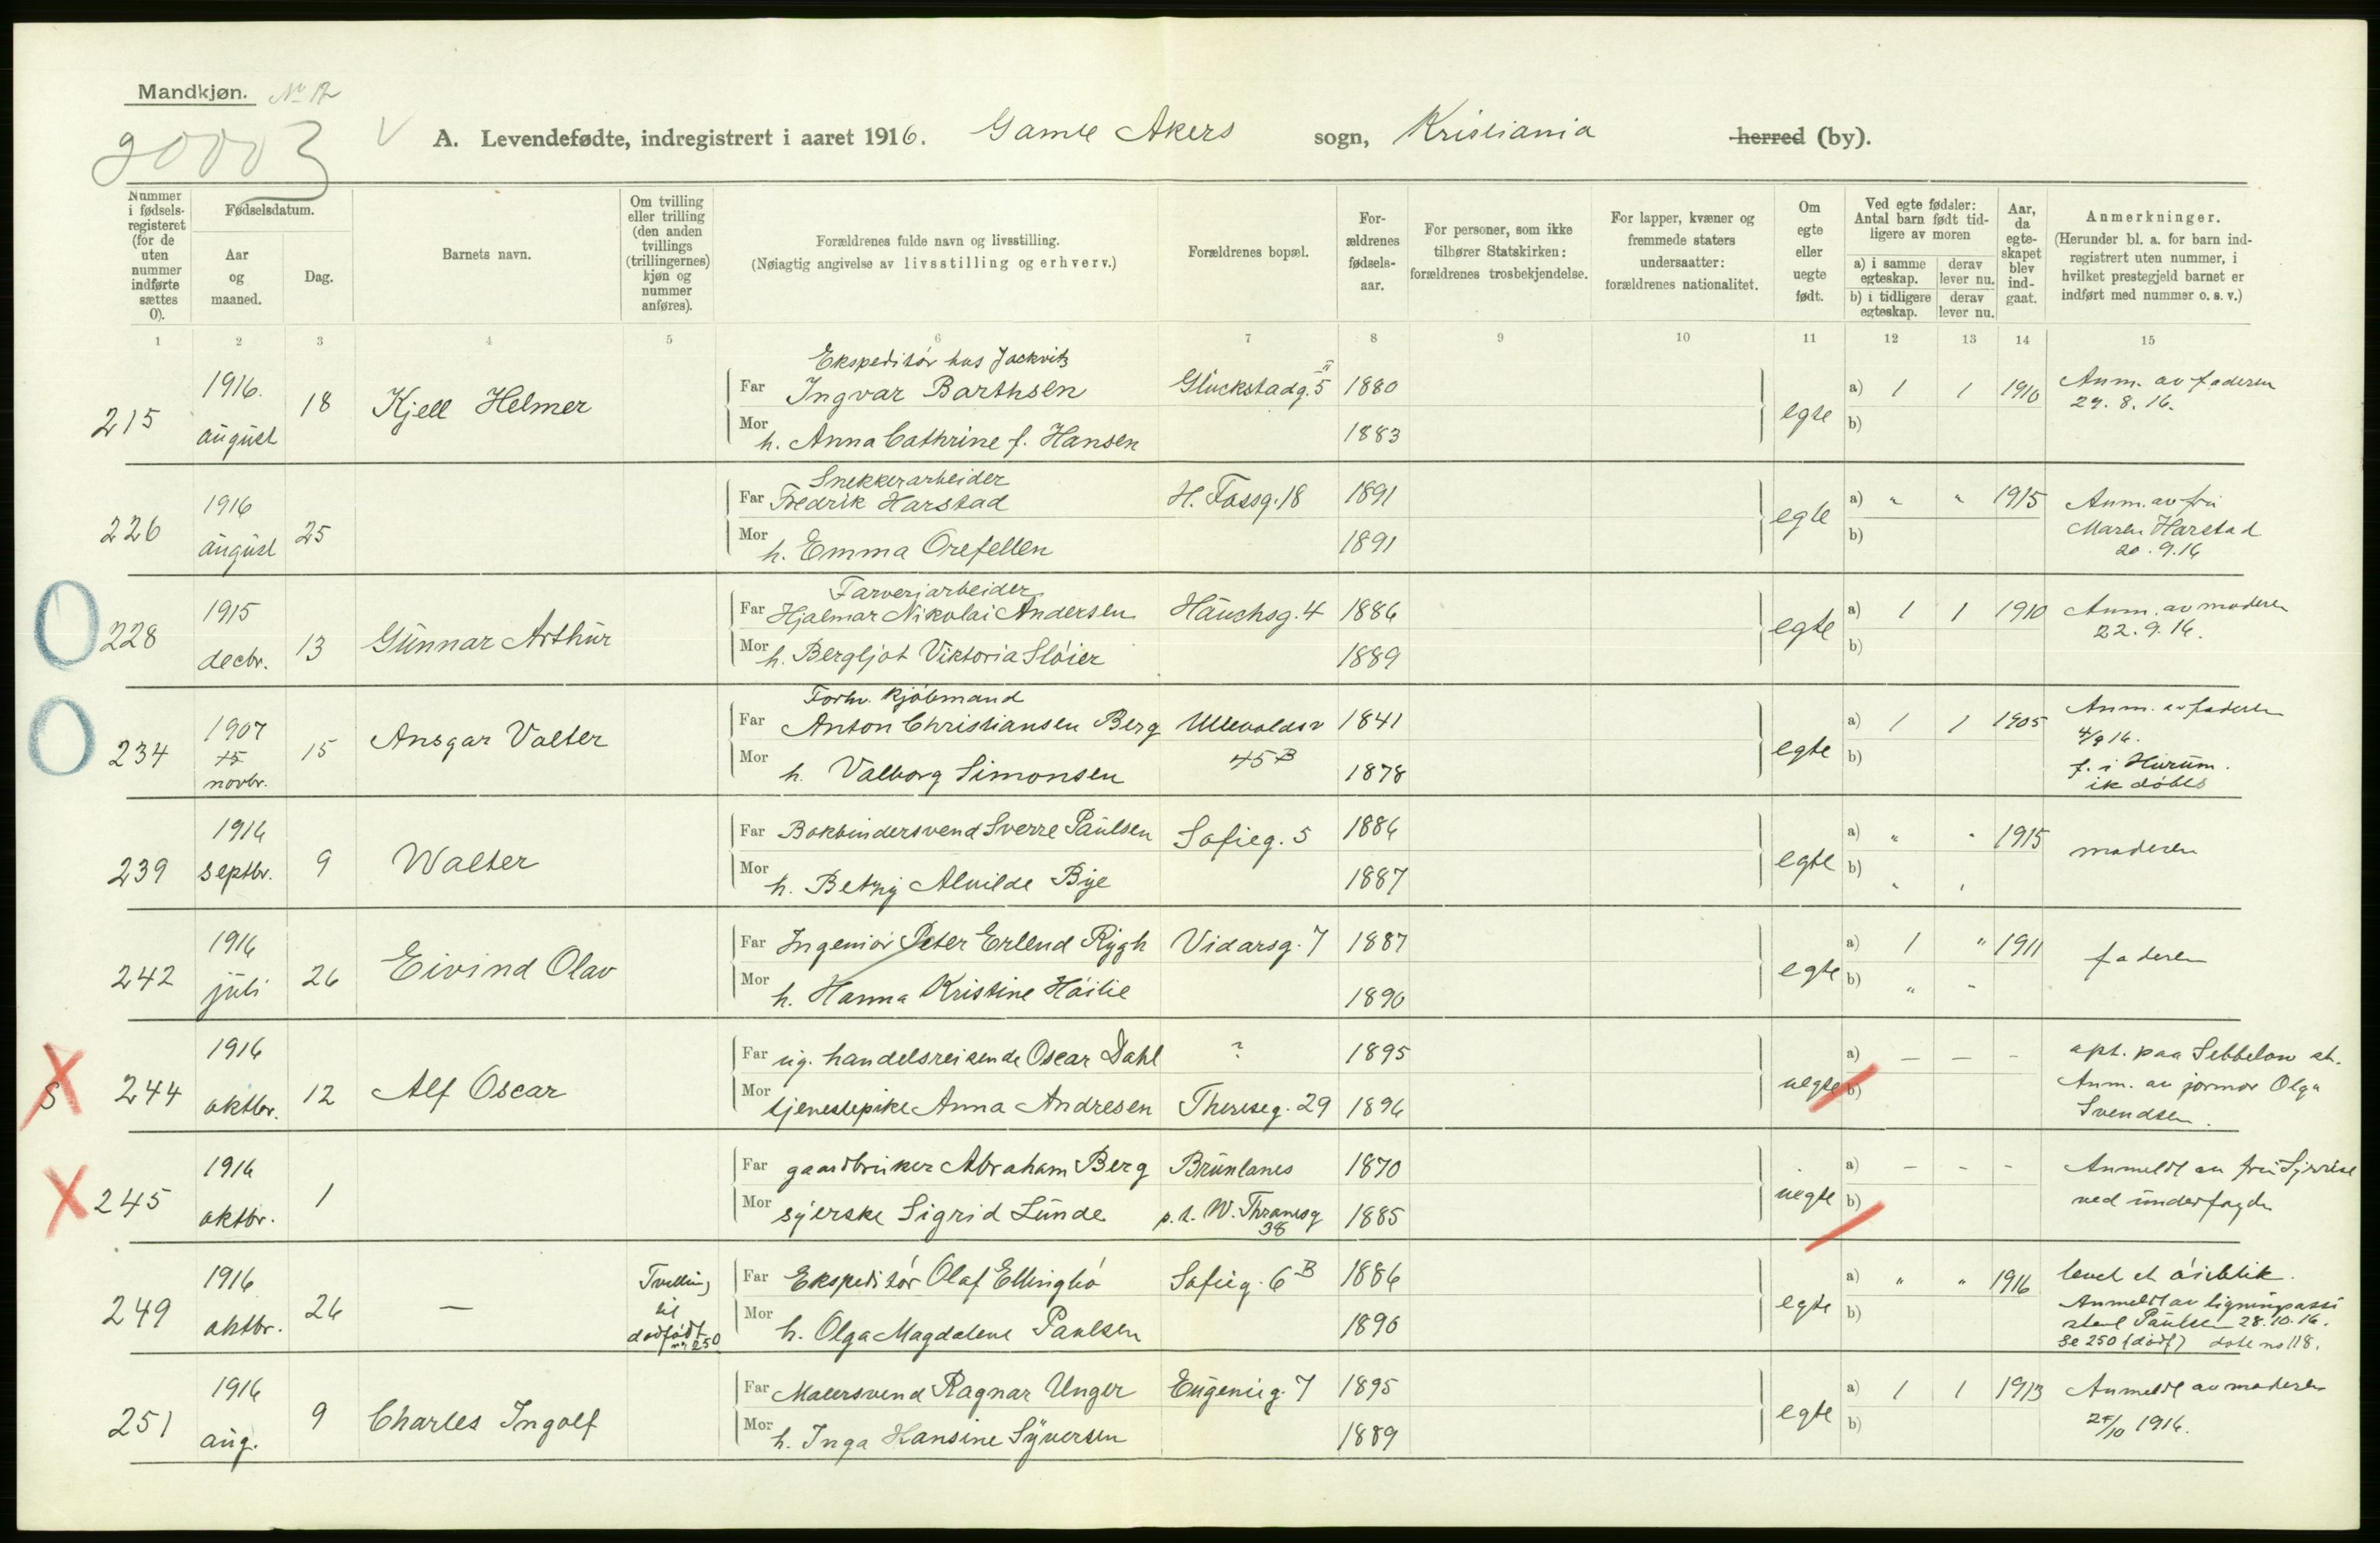 Mandkjøn. No 12
20003 V
A. Levendefødte, indregistrert i aaret 1916. Gamle Akers sogn, Kristiania herred (by).
Nummer i fødselsregisteret (for de uten nummer indførte sættes 0).
Fødselsdatum.
Aar og maaned.
Dag.
Barnets navn.
Om tvilling eller trilling (den anden tvillings (trillingernes) kjøn og nummer anføres).
Forældrenes fulde navn og livsstilling.
(Nøiagtig angivelse av livsstilling og erhverv.)
Forældrenes bopæl.
Forældrenes fødselsaar.
For personer, som ikke tilhører Statskirken: forældrenes trosbekjendelse.
For lapper, kvæner og fremmede staters undersaatter: forældrenes nationalitet.
Om egte eller uegte født.
Ved egte fødsler: Antal barn født tidligere av moren
a) i samme egteskap. derav lever nu.
b) i tidligere egteskap. derav lever nu.
Aar, da egteskapet blev indgaat.
Anmerkninger.
(Herunder bl. a. for barn indregistrert uten nummer, i hvilket prestegjeld barnet er indført med nummer o. s. v.)
1 2 3 4 5 6 7 8 9 10 11 12 13 14 15
215 1916. august 18 Kjell Helmer
Ekspeditör hus Jackwitz
Far Ingvar Barthsen Glückstadg. 5 II 1880
Mor h. Anna Cathrine f. Hansen 1883
egte a) 1 1 1910 b)
Anm. av faderen
29. 8. 16.
226 1916 august 25
Snekkerarbeider
Far Fredrik Harstad H. Fossg. 18 1891
Mor h. Emma Orefellen 1891
egte a) " " 1915 b)
Anm. av fru
Maren Harstad
20. 9. 16
228 1915 decbr. 13 Gunnar Arthur
Farveriarbeider
Far Hjalmar Nikolai Andersen Hauchsg. 4 1886
Mor h. Bergljot Viktoria Slöier 1889
egte a) 1 1 1910 b)
Anm. av moderen
22. 9. 16.
234 1907 15 novbr. 15 Ansgar Valter
Forhv. kjöbmand
Far Anton Christiansen Berg Ullevoldsv 1841
45 B
Mor h. Valborg Simonsen 1878
egte a) 1 1 1905 b)
Anm. av faderen
4/9 16.
f. i Hurum.
ik döbes
239 1916 septbr. 9 Walter
Far Bokbindersvend Sverre Paulsen Sofieg. 5 1886
Mor h. Betzy Alvilde Bye 1887
egte a) " " 1915 b) " "
moderen
242 1916 juli 26 Eivind Olav
Far Ingeniör Peter Erlend Rygh Vidarsg. 7 1887
Mor h. Hanna Kristine Höilie 1890
egte a) 1 " 1911 b) " "
faderen
S X 244 1916 oktbr. 12 Alf Oscar
Far ug. handelsreisende Oscar Dahl ? 1895
Mor tjenestepike Anna Andresen Thereseg. 29 1896
uegte a) — — — b)
opt. paa Sebbelow st.
Anm. av jormor Olga
Svendsen.
X 245 1916 oktbr. 1
Far gaardbruker Abraham Berg Brunlanes 1870
Mor syerske Sigrid Lunde p. t. W. Thranesg 38 1885
uegte a) - - - b)
Anmeldt av fru
ved
249 1916 oktbr. 26 —
Tvilling til dødfödt no 250
Far Ekspeditör Olaf Ellingbö Sofieg. 6 B 1886
Mor h. Olga Magdalene Paulsen 1890
egte a) " " 1916 b)
levet et öieblik.
Anmeldt av ligningsassi
stent Paulsen 28.10.16.
Se 250 (dödf) döde no 118.
251 1916 aug. 9 Charles Ingolf
Far Malersvend Ragnar Unger Eugenieg. 7 1895
Mor h. Inga Hansine Syversen 1889
egte a) 1 1 1913 b)
Anmeldt av moderen
25/10 1916.